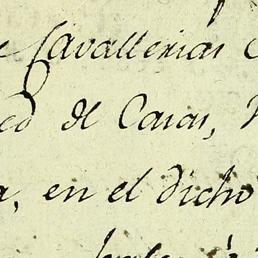 Cavallerias
ed de Casas,
a, en el dicho